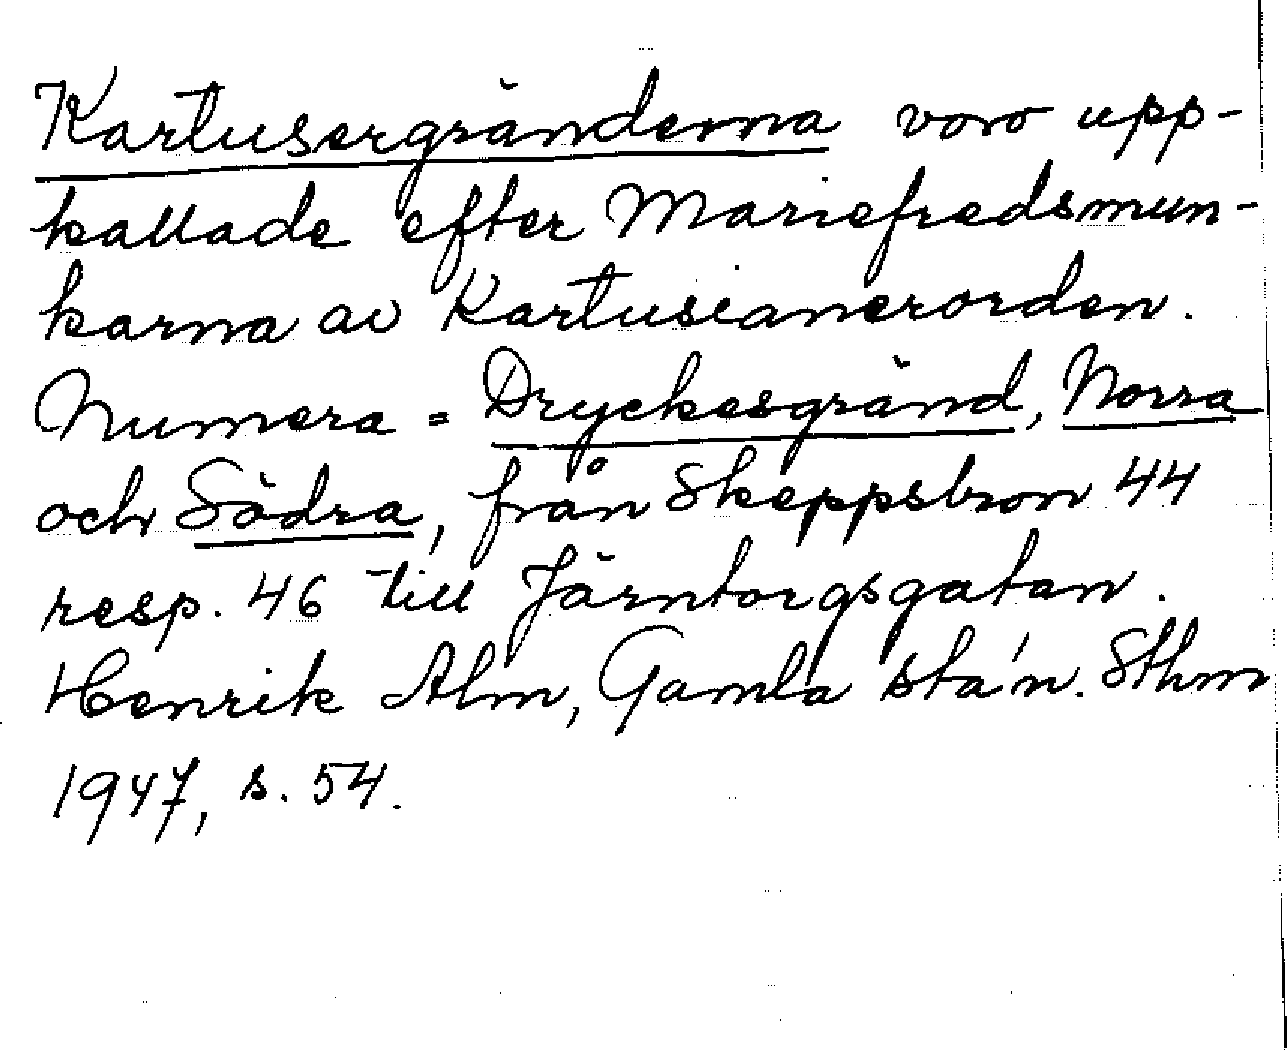 Kartusergränderna voro upp-
kallade efter Mariefredsmun-
karna av Kartusianerorden.
Numera = Dryckesgränd, Norra
och Södra, från Skeppsbron 44
resp. 46 till Järntorgsgatan.
Henrik Alm, Gamla sta'n. Sthm
1947, s. 54.